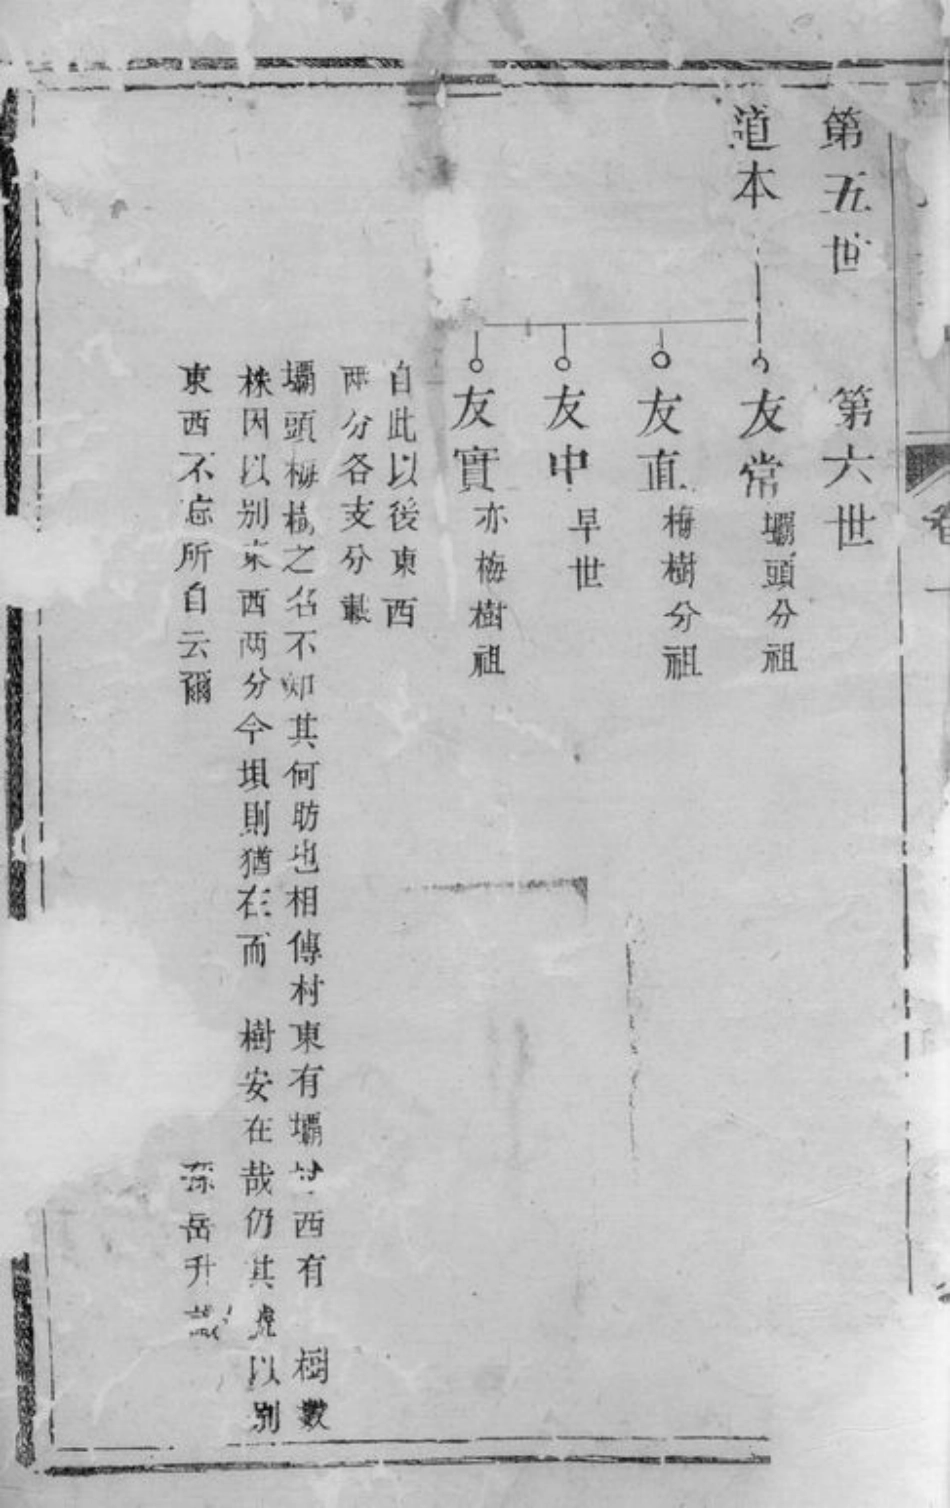 第五世 第六世
道本
友常 壩頭分祖
友直 梅樹分祖
友中 早世
友實 亦梅樹祖
自此以後東西
兩分各支分載
壩頭梅樹之名不知其何昉也相傳村東有壩村西有樹數
株因以別東西两分今垻則猶在而樹安在哉仍其號以別
東西不忘所自云爾 孫岳升識
卷一